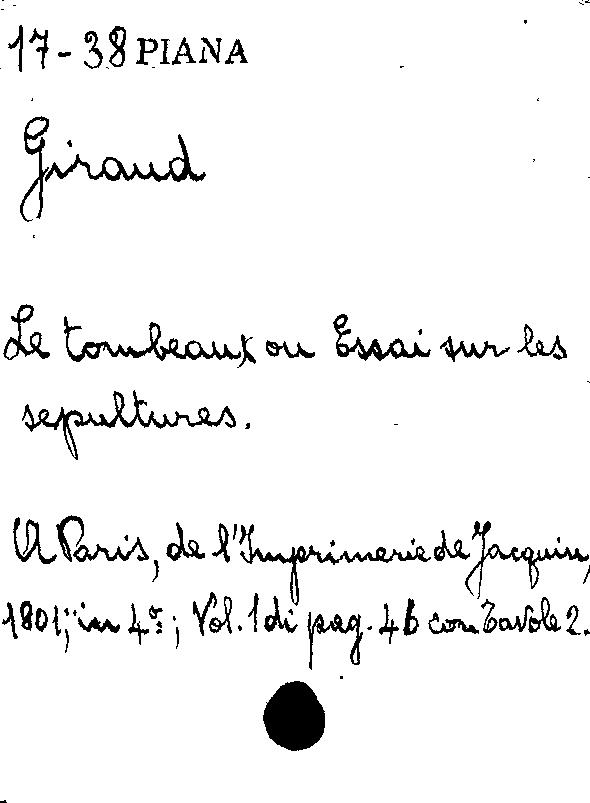 17-38 PIANA
Giraud
Le tombeaux ou Essai sur les
sepultures.
A Paris, de l'Imprimerie de Jacquin,
1801; in 4º; Vol. 1 di pag. 46 con Tavole 2.